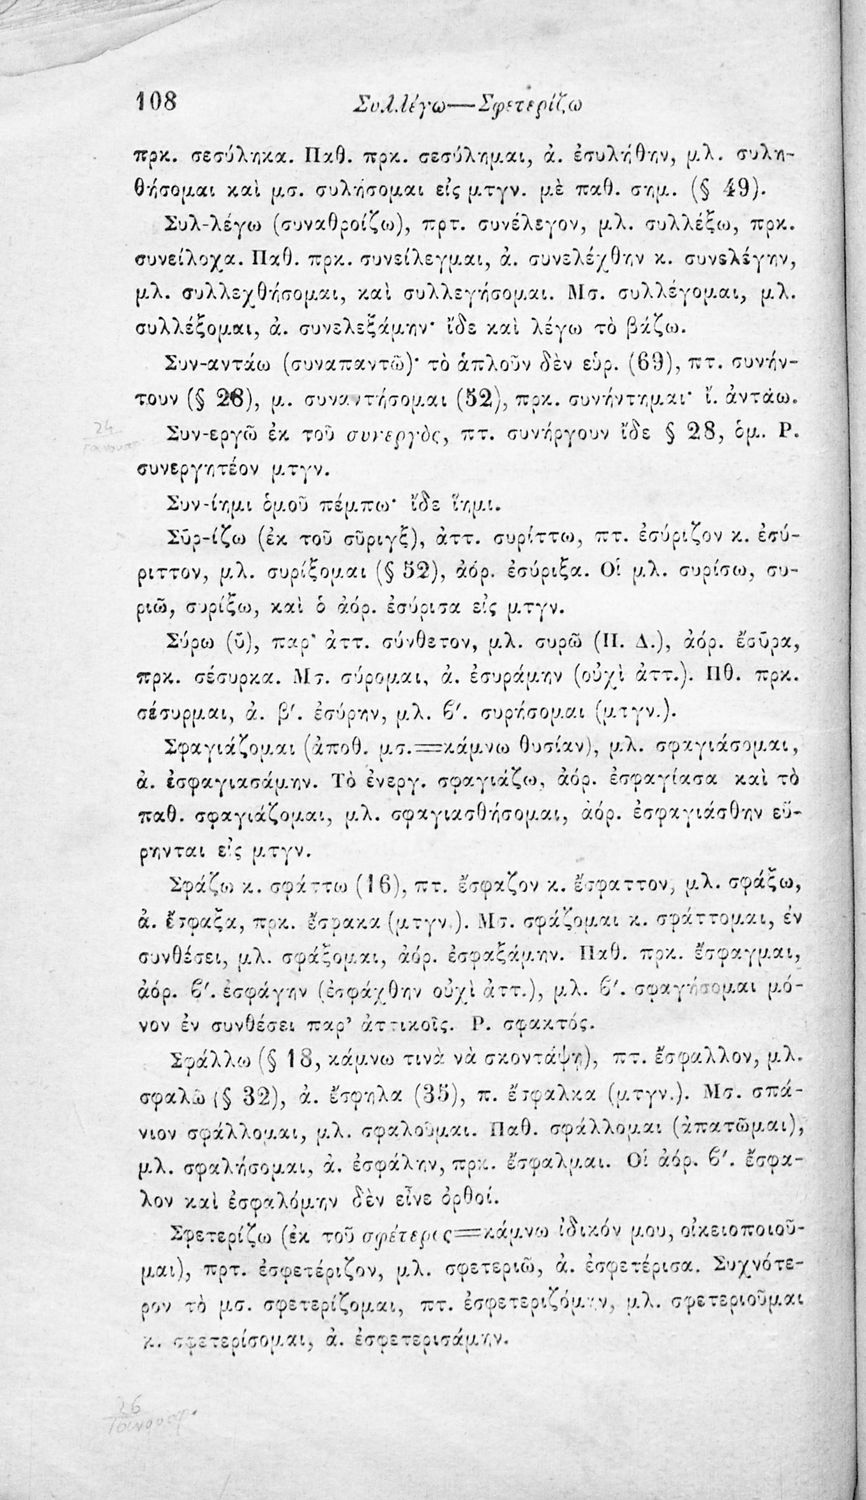 108 Συλλέγω—Σφετερίζω
πρκ. σεσύληκα. Παθ. πρκ. σεσύλημαι, ἀ. ἐσυλήθην, μλ. συλη-
θήσομαι καὶ μσ. συλήσομαι εἰς μτγν. μὲ παθ. σημ. (§ 49).
Συλ-λέγω (συναθροίζω), πρτ. συνέλεγον, μλ. συλλέξω, πρκ.
συνείλοχα. Παθ. πρκ. συνείλεγμαι, ἀ. συνελέχθην κ. συνελέγην,
μλ. συλλεχθήσομαι, καὶ συλλεγήσομαι. Μσ. συλλέγομαι, μλ.
συλλέξομαι, ἀ. συνελεξάμην· ἴδε καὶ λέγω τὸ βάζω.
Συν-αντάω (συναπαντῶ)· τὸ ἁπλοῦν δὲν εὑρ. (69), πτ. συνήν-
τουν (§ 26), μ. συναντήσομαι (52), πρκ. συνήντημαι· ἴ. ἀντάω.
24
Συν-εργῶ ἐκ τοῦ συνεργὸς, πτ. συνήργουν ἴδε § 28, ὁμ. Ρ.
συνεργητέον μτγν.
Συν-ίημι ὁμοῦ πέμπω· ἴδε ἵημι.
Σῡρ-ίζω (ἐκ τοῦ σῦριγξ), ἀττ. συρίττω, πτ. ἐσύριζον κ. ἐσύ-
ριττον, μλ. συρίξομαι (§ 52), ἀόρ. ἐσύριξα. Οἱ μλ. συρίσω, συ-
ριῶ, συρίξω, καὶ ὁ ἀόρ. ἐσύρισα εἰς μτγν.
Σύρω (ῡ), παρ' ἀττ. σύνθετον, μλ. συρῶ (Π. Δ.), ἀόρ. ἔσῡρα,
πρκ. σέσυρκα. Μσ. σύρομαι, ἀ. ἐσυράμην (οὐχὶ ἀττ.). Πθ. πρκ.
σέσυρμαι, ἀ. β'. ἐσύρην, μλ. ϐ'. συρήσομαι (μτγν.).
Σφαγιάζομαι (ἀποθ. μσ.=κάμνω θυσίαν), μλ. σφαγιάσομαι,
ἀ. ἐσφαγιασάμην. Τὸ ἐνεργ. σφαγιάζω, ἀόρ. ἐσφαγίασα καὶ τὸ
παθ. σφαγιάζομαι, μλ. σφαγιασθήσομαι, ἀόρ. ἐσφαγιάσθην εὕ-
ρηνται εἰς μτγν.
Σφάζω κ. σφάττω (16), πτ. ἔσφαζον κ. ἔσφαττον, μλ. σφάξω,
ἀ. ἔσφαξα, πρκ. ἔσφακα (μτγν.). Μσ. σφάζομαι κ. σφάττομαι, ἐν
συνθέσει, μλ. σφάξομαι, ἀόρ. ἐσφαξάμην. Παθ. πρκ. ἔσφαγμαι,
ἀόρ. ϐ'. ἐσφάγην (ἐσφάχθην οὐχὶ ἀττ.), μλ. ϐ'. σφαγήσομαι μό-
νον ἐν συνθέσει παρ' ἀττικοῖς. Ρ. σφακτός.
Σφάλλω (§ 18, κάμνω τινὰ νὰ σκοντάψῃ), πτ. ἔσφαλλον, μλ.
σφαλῶ (§ 32), ἀ. ἔσφηλα (35), π. ἔσφαλκα (μτγν.). Μσ. σπά-
νιον σφάλλομαι, μλ. σφαλοῦμαι. Παθ. σφάλλομαι (ἀπατῶμαι),
μλ. σφαλήσομαι, ἀ. ἐσφάλην, πρκ. ἔσφαλμαι. Οἱ ἀόρ. ϐ'. ἔσφα-
λον καὶ ἐσφαλόμην δὲν εἶνε ὀρθοί.
Σφετερίζω (ἐκ τοῦ σφέτερος=κάμνω ἰδικόν μου, οἰκειοποιοῦ-
μαι), πρτ. ἐσφετέριζον, μλ. σφετεριῶ, ἀ. ἐσφετέρισα. Συχνότε-
ρον τὸ μσ. σφετερίζομαι, πτ. ἐσφετεριζόμην, μλ. σφετεριοῦμαι
κ. σφετερίσομαι, ἀ. ἐσφετερισάμην.
26